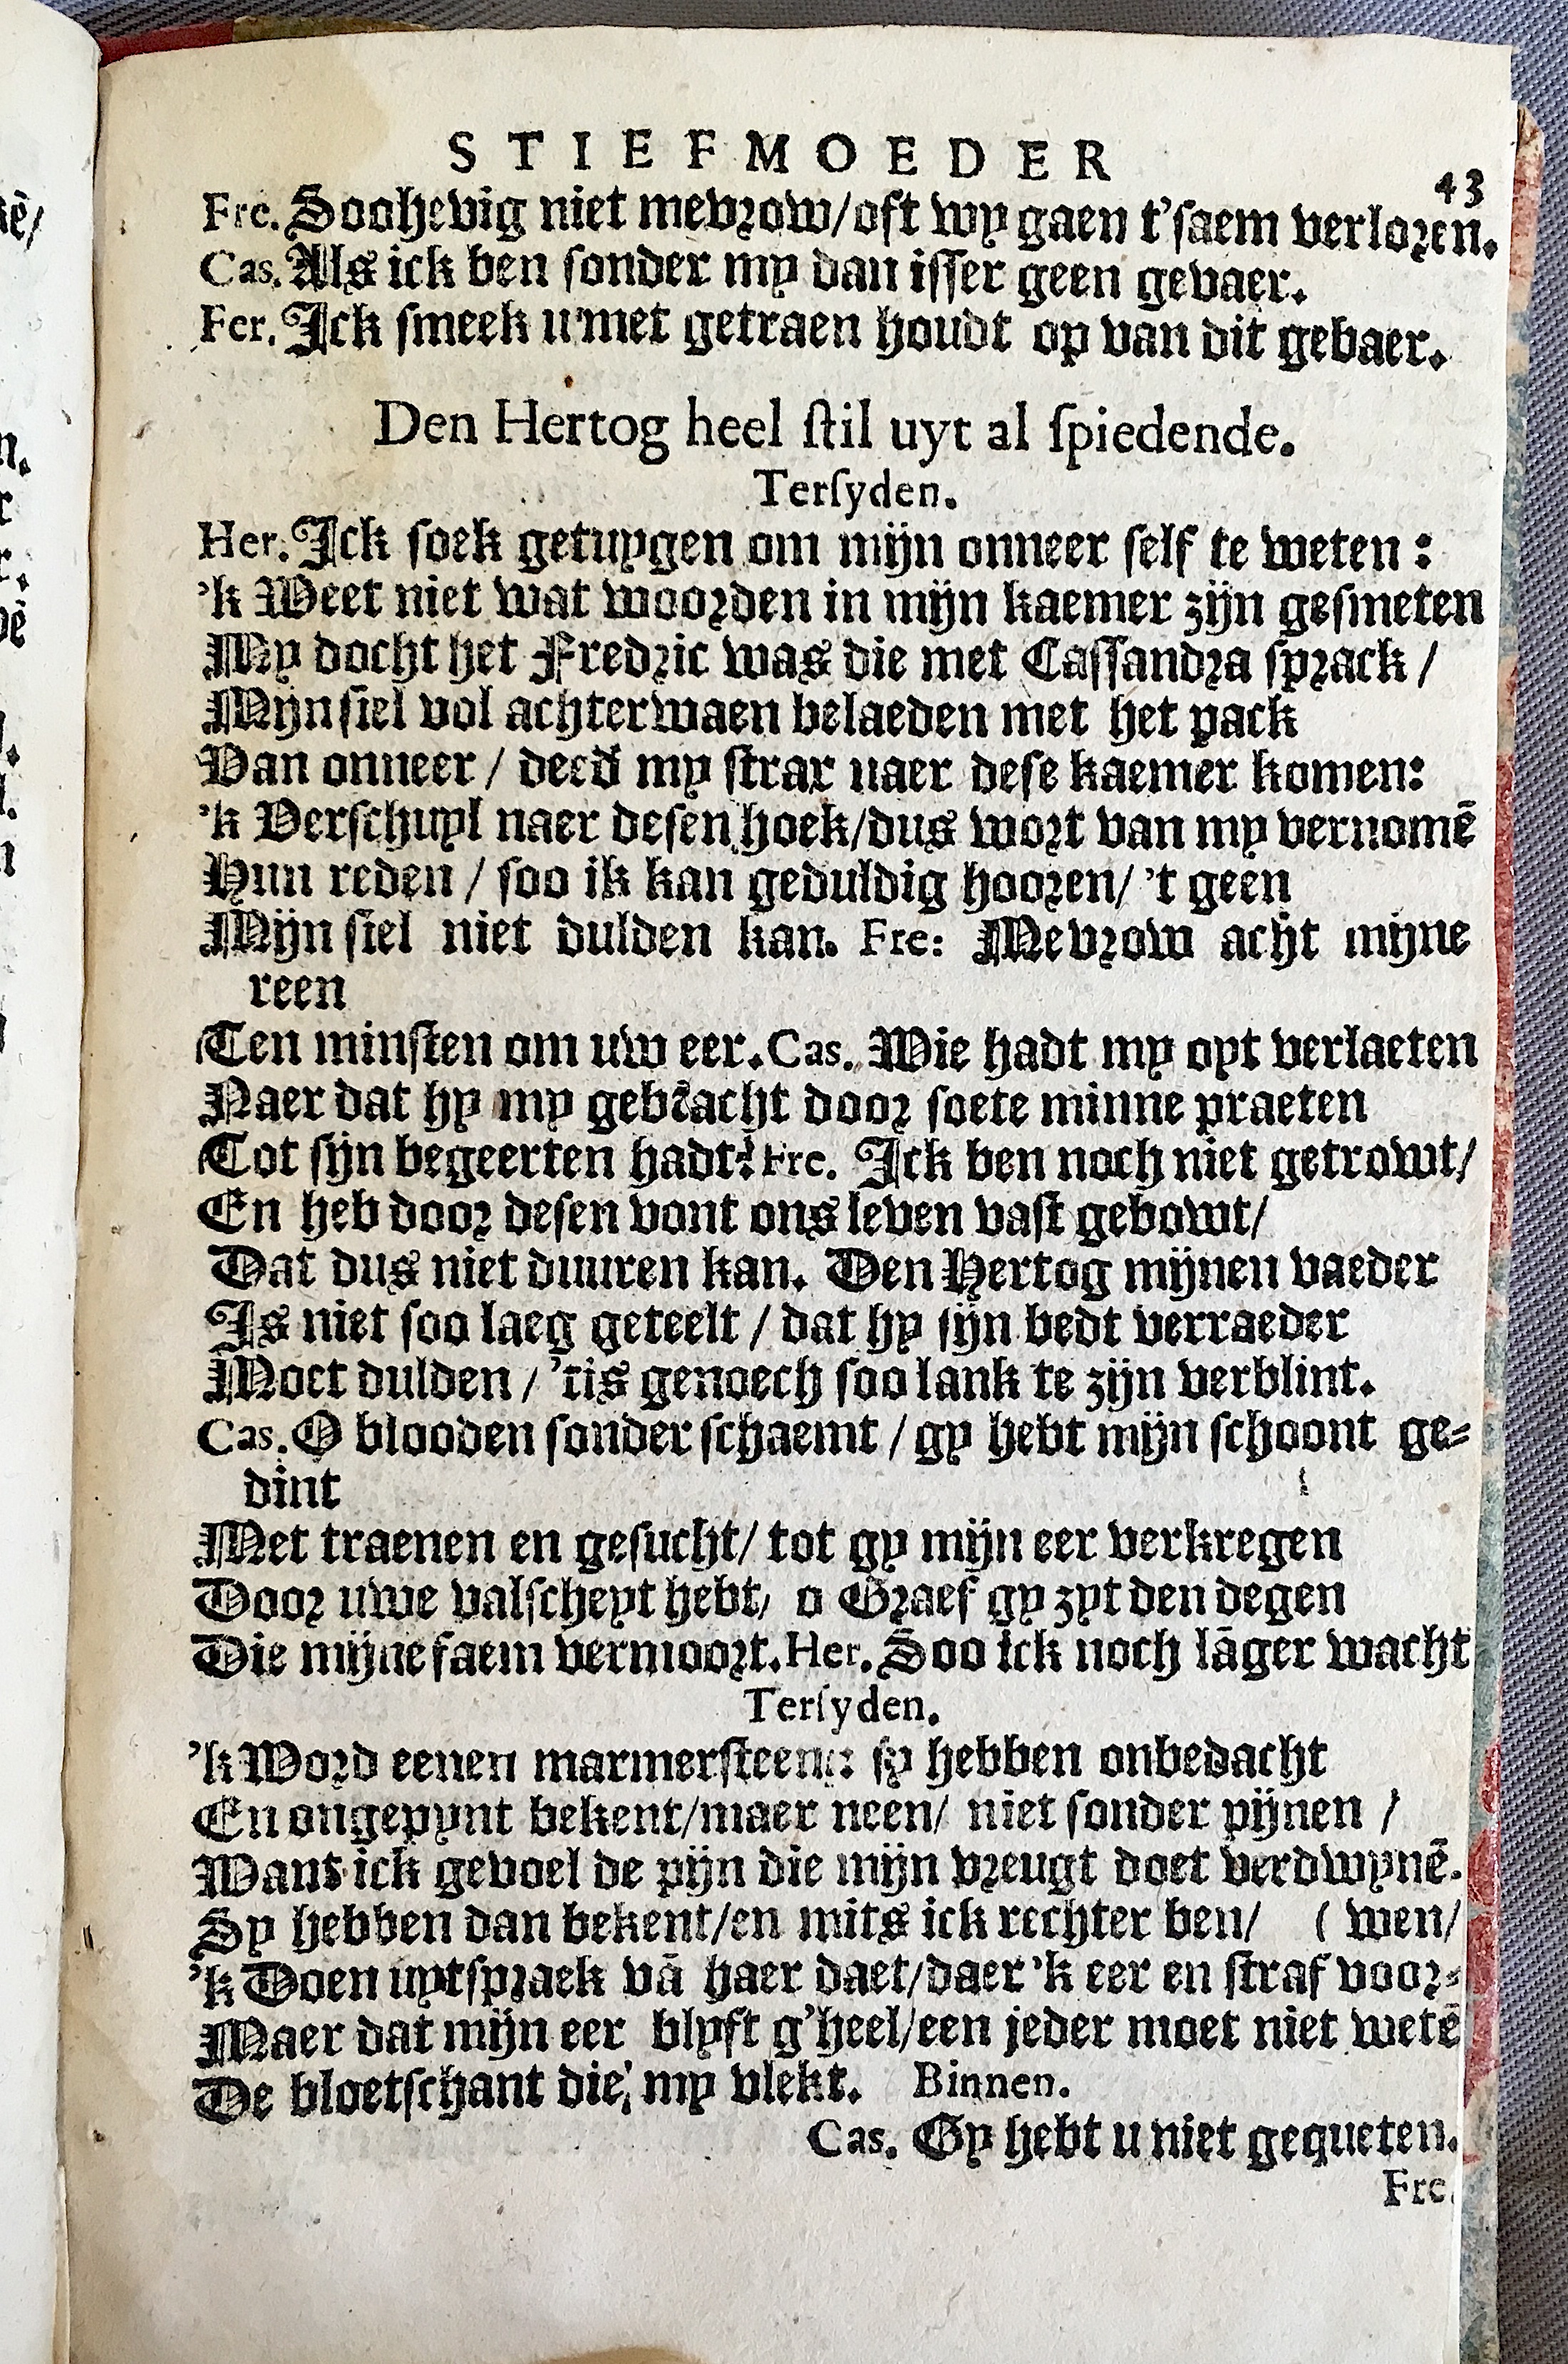 STIEFMOEDER
43
Fre. Soohevig niet mevrow/oft wy gaen t'saem verloren.
Cas. Als ick ben sonder my dan isser geen gevaer.
Fer. Ick smeek u met getraen houdt op van dit gebaer.
Den Hertog heel stil uyt al spiedende.
Tersyden.
Her. Ick soek getuygen om mijn onneer self te weten :
'k Weet niet wat woorden in mijn kaemer zijn gesmeten
My docht het Fredric was die met Cassandra sprack /
Mijn siel vol achterwaen belaeden met het pack
Van onneer / deed my strax naer dese kaemer komen:
'k Verschuyl naer desen hoek/dus wort van my vernomē
Hun reden / soo ik kan geduldig hooren/ 't geen
Mijn siel niet dulden kan. Fre: Mevrow acht mijne
reen
Ten minsten om uw eer. Cas. Wie hadt my oyt verlaeten
Naer dat hy my gebracht door soete minne praeten
Tot sijn begeerten hadt? Fre. Ick ben noch niet getrowt/
En heb door desen vont ons leven vast gebowt/
Dat dus niet duuren kan. Den Hertog mijnen vaeder
Is niet soo laeg geteelt / dat hy sijn bedt verraeder
Moet dulden / 'tis genoech soo lank te zijn verblint.
Cas. O blooden sonder schaemt / gy hebt mijn schoont ge-
dint
Met traenen en gesucht/ tot gy mijn eer verkregen
Door uwe valscheyt hebt, o Graef gy zyt den degen
Die mijne faem vermoort. Her. Soo ick noch lāger wacht
Tersyden.
'k Word eenen marmersteen: sy hebben onbedacht
En ongepynt bekent/maer neen/ niet sonder pijnen /
Want ick gevoel de pijn die mijn vreugt doet verdwynē.
Sy hebben dan bekent/en mits ick rechter ben/ ( wen/
'k Doen uytspraek vā haer daet/daer 'k eer en straf voor-
Maer dat mijn eer blyft g'heel/een jeder moet niet wetē
De bloetschant die my vlekt. Binnen.
Cas. Gy hebt u niet gequeten.
Fre.